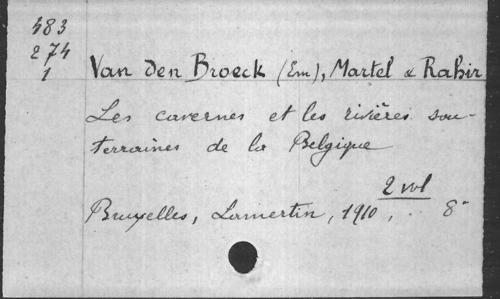 483
274
1
Van den Broeck (Em), Martel & Rahir
Les cavernes et les rivières sou-
terraines de la Belgique
2 vol
Bruxelles, Lamertin, 1910, .. 8°